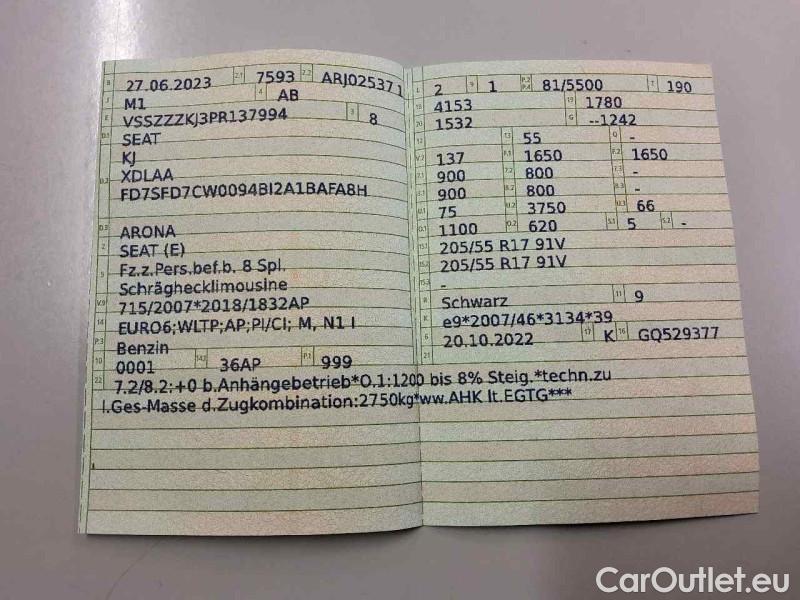 B 27.06.2023 2.1 7593 2.2 ARJ025371
J M1 4 AB
E VSSZZZKJ3PR137994 3 8
D.1 SEAT
D.2 KJ
XDLAA
FD7SFD7CW0094BI2A1BAFA8H
D.3 ARONA
2 SEAT (E)
5 Fz.z.Pers.bef.b. 8 Spl.
Schräghecklimousine
V.9 715/2007*2018/1832AP
14 EURO6;WLTP;AP;PI/CI; M, N1 I
P.3 Benzin
10 0001 14.1 36AP P.1 999
22 7.2/8.2:+0 b.Anhängebetrieb*O.1:1200 bis 8% Steig.*techn.zu
l.Ges-Masse d.Zugkombination:2750kg*ww.AHK lt.EGTG***
L 2 9 1 P.2 P.4 81/5500 T 190
18 4153 19 1780
20 1532 G --1242
13 55 Q -
V.7 137 F.1 1650 F.2 1650
7.1 900 7.2 800 7.3 -
8.1 900 8.2 800 8.3 -
U.1 75 U.2 3750 U.3 66
O.1 1100 O.2 620 S.1 5 S.2 -
15.1 205/55 R17 91V
15.2 205/55 R17 91V
15.3 -
R Schwarz 11 9
K e9*2007/46*3134*39
6 20.10.2022 17 K 16 GQ529377
21
CarOutlet.eu